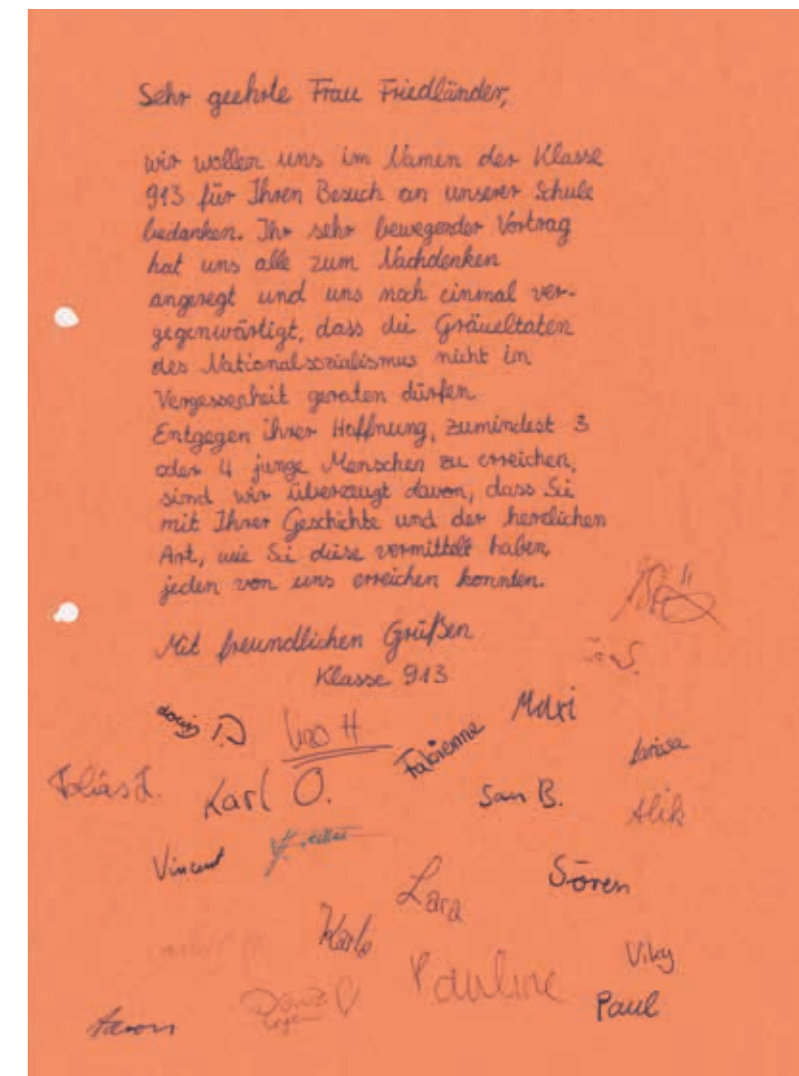 Sehr geehrte Frau Friedländer,
wir wollen uns im Namen der Klasse
913 für Ihren Besuch an unserer Schule
bedanken. Ihr sehr bewegender Vortrag
hat uns alle zum Nachdenken
angeregt und uns noch einmal ver-
gegenwärtigt, dass die Gräueltaten
des Nationalsozialismus nicht in
Vergessenheit geraten dürfen.
Entgegen ihrer Hoffnung, zumindest 3
oder 4 junge Menschen zu erreichen,
sind wir überzeugt davon, dass Sie
mit Ihrer Geschichte und der herzlichen
Art, wie Sie diese vermittelt haben,
jeden von uns erreichen konnten.
Mit freundlichen Grüßen
Klasse 913
Maxi
Fabienne
Larissa
Tobias
Karl O.
Sam B.
Alik
Vincent
Sören
Lara
Karla
Viky
Pauline
Paul
Aaron